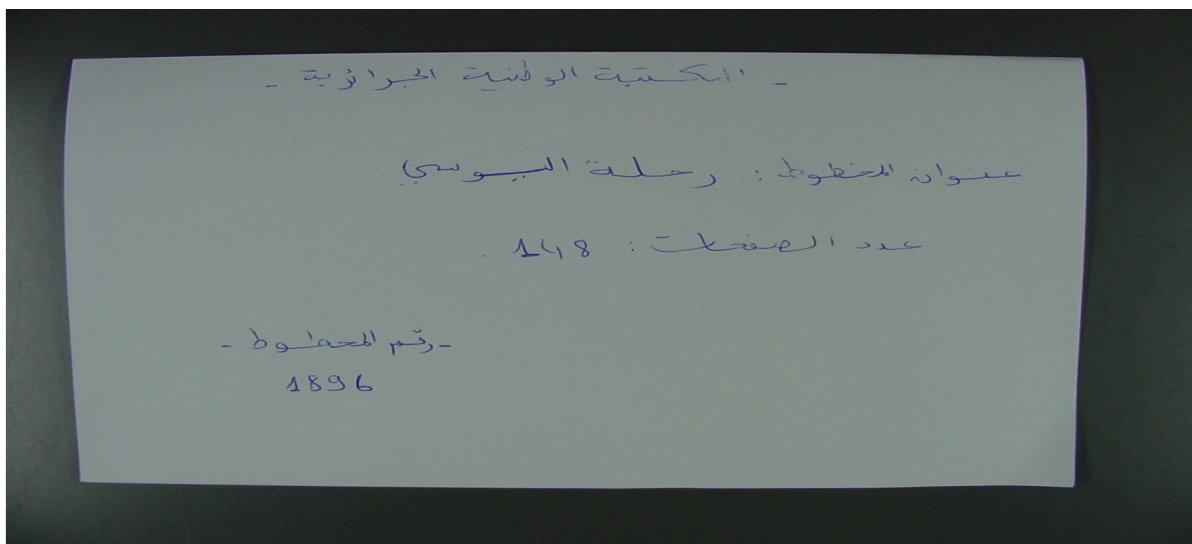 - المكتبة الوطنية الجزائرية -
عنوان المخطوط : رحلة اليوسي
عدد الصفحات : 148 .
- رقم المخطوط -
1896